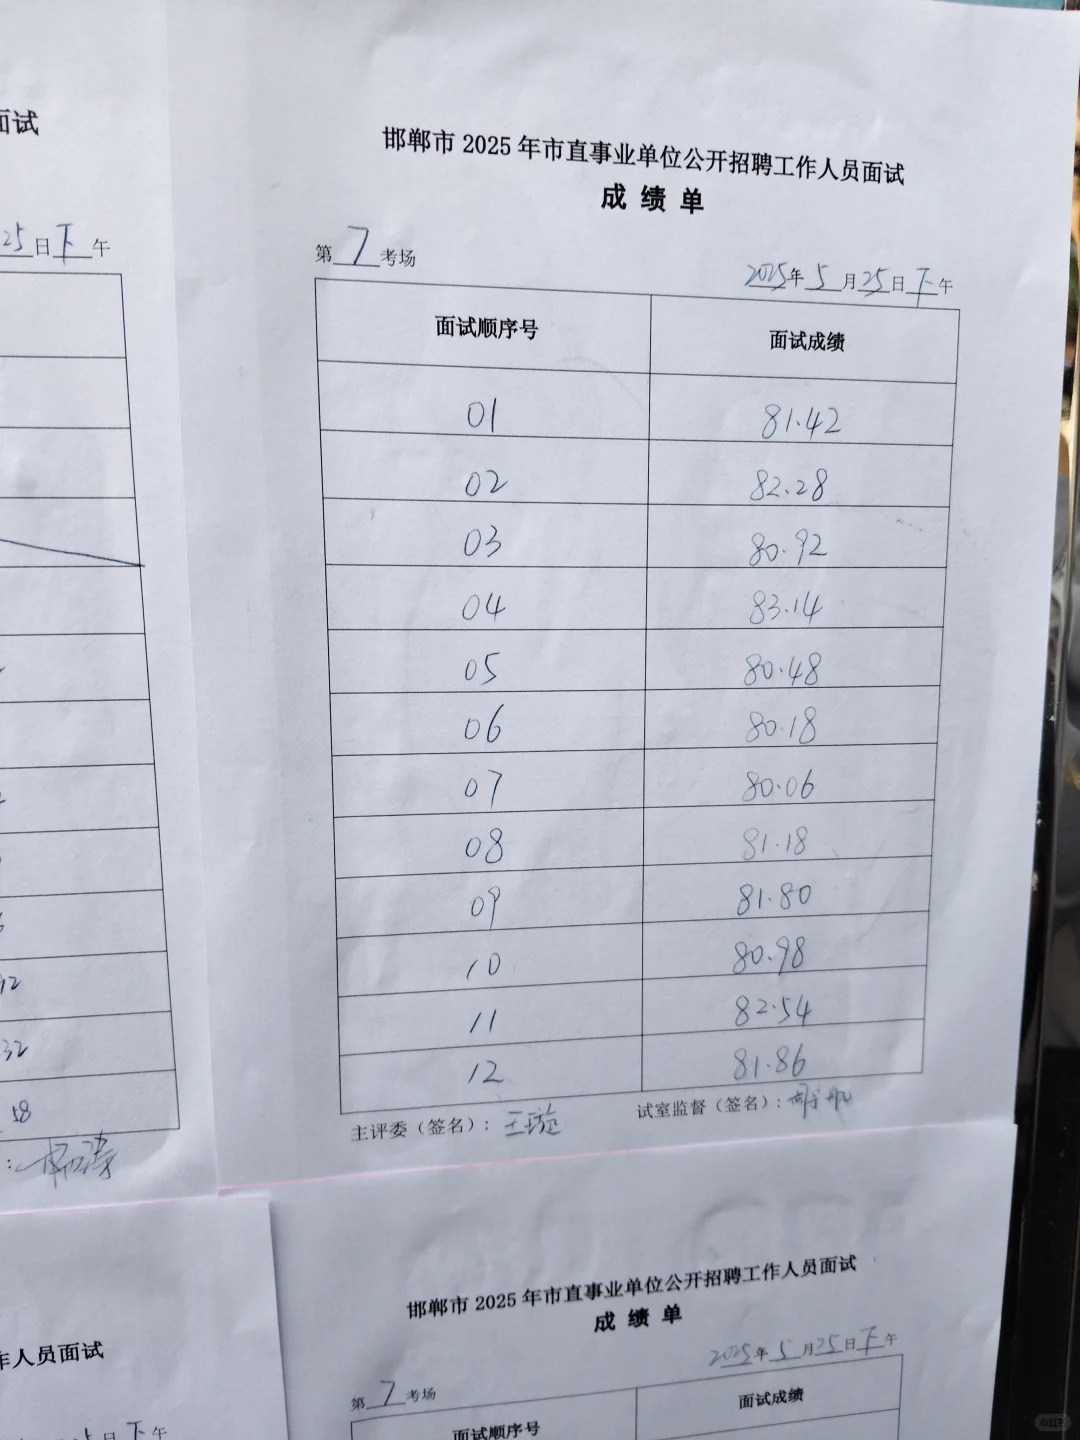 面试
25日下午
12
32
58
邯郸市 2025 年市直事业单位公开招聘工作人员面试
成 绩 单
第 7 考场
2025年 5 月 25 日 下 午
面试顺序号 面试成绩
01 81.42
02 82.28
03 80.92
04 83.14
05 80.48
06 80.18
07 80.06
08 81.18
09 81.80
10 80.98
11 82.54
12 81.86
主评委（签名）：王璇 试室监督（签名）：
作人员面试
日下午
邯郸市 2025 年市直事业单位公开招聘工作人员面试
成 绩 单
2025年 5 月 25 日 下 午
第 7 考场
面试顺序号 面试成绩
小红书